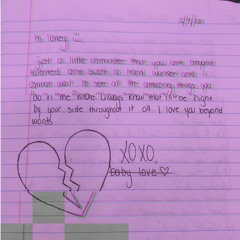 Hi lovely
Just a little reminder that you are beyond
talented and such a hard worker and I
cannot wait to see all the amazing things you
do in the future. Always know that I'll be right
by your side throughout it all. I love you beyond
words
XOXO,
baby love